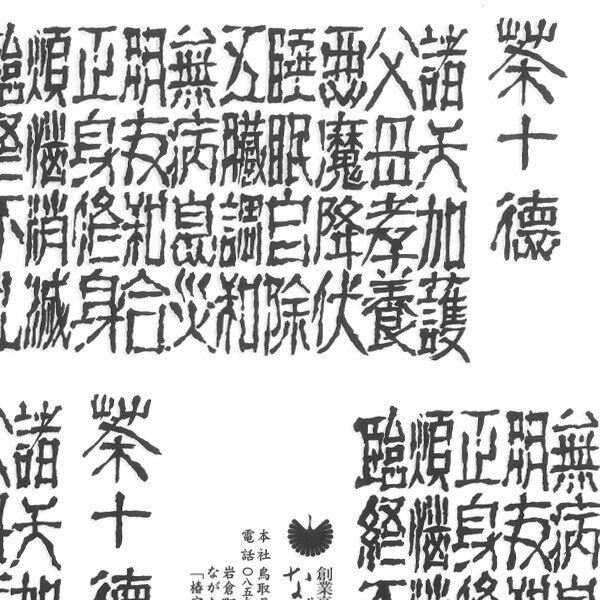 茶十徳
諸天加護
父母孝養
悪魔降伏
睡眠自除
五臓調和
無病息災
朋友和合
正身修身
煩悩消滅
臨終不乱
無病息
朋友和
正身修
煩悩消
臨終不
創業
な
本社鳥取
電話〇八五
岩倉
なが
「椿
茶十徳
諸天加